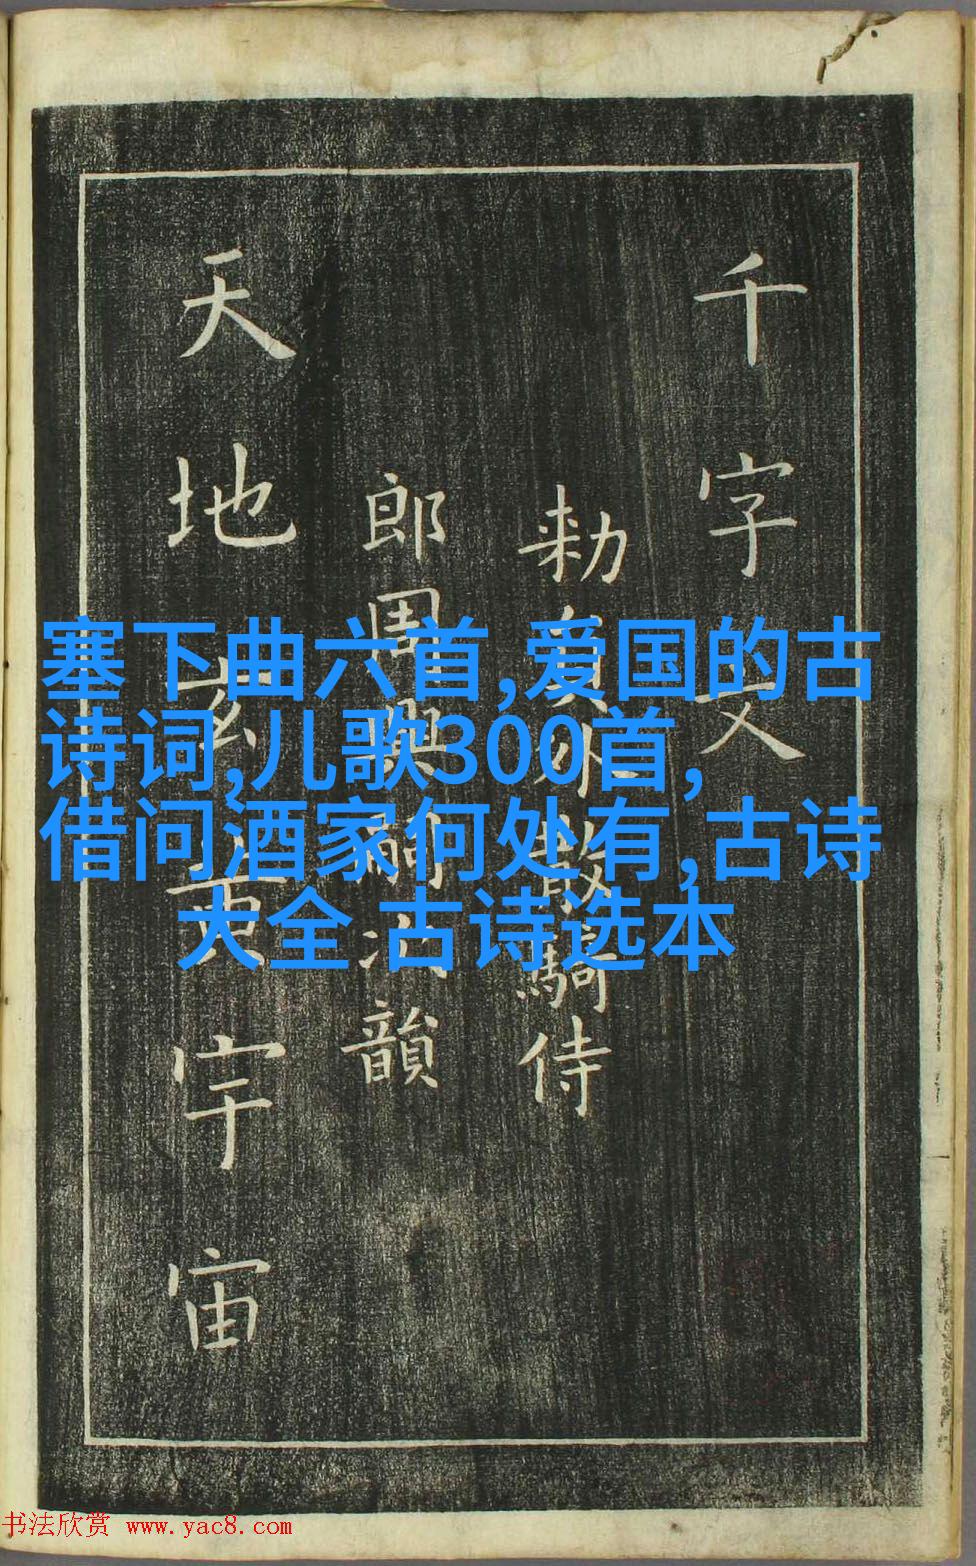 千字文
敕員外散騎侍
郎周興嗣次韻
天地玄黃宇宙
塞下曲六首,爱国的古
诗词,儿歌300首,
借问酒家何处有,古诗
大全 古诗选本
书法欣赏 www.yac8.com